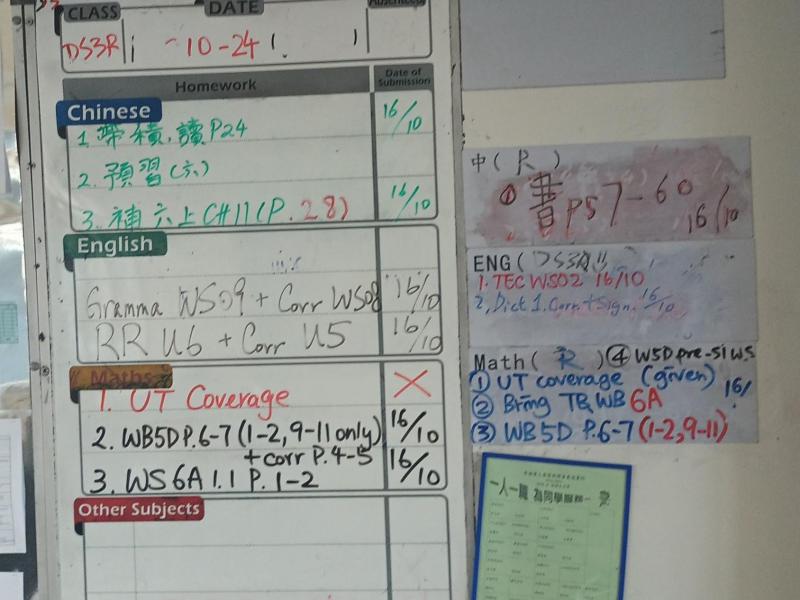 CLASS
DATE
DS3R
-10-24
Homework
Date of Submission
Chinese
1. 帶積,讀P24
16/10
2. 預習(六)
3. 補六上CH11(P.28)
16/10
English
Gramma WS09 + Corr WS08
16/10
RR U6 + Corr U5
16/10
Maths
1. UT Coverage
X
2. WB5D P.6-7 (1-2, 9-11 only)
16/10
+ corr P.4-5
3. WS 6A 1.1 P. 1-2
16/10
Other Subjects
中( R )
① 書 P57-60
16/10
ENG(
1. TEC WS02 16/10
2, Dict 1. Corr + Sign. 16/10
Math( R ) ④ W5D pre-S1 WS
① UT coverage (given)
16/
② Bring TB, WB 6A
③ WB 5D P.6-7 (1-2, 9-11)
一人一職 為同學服務